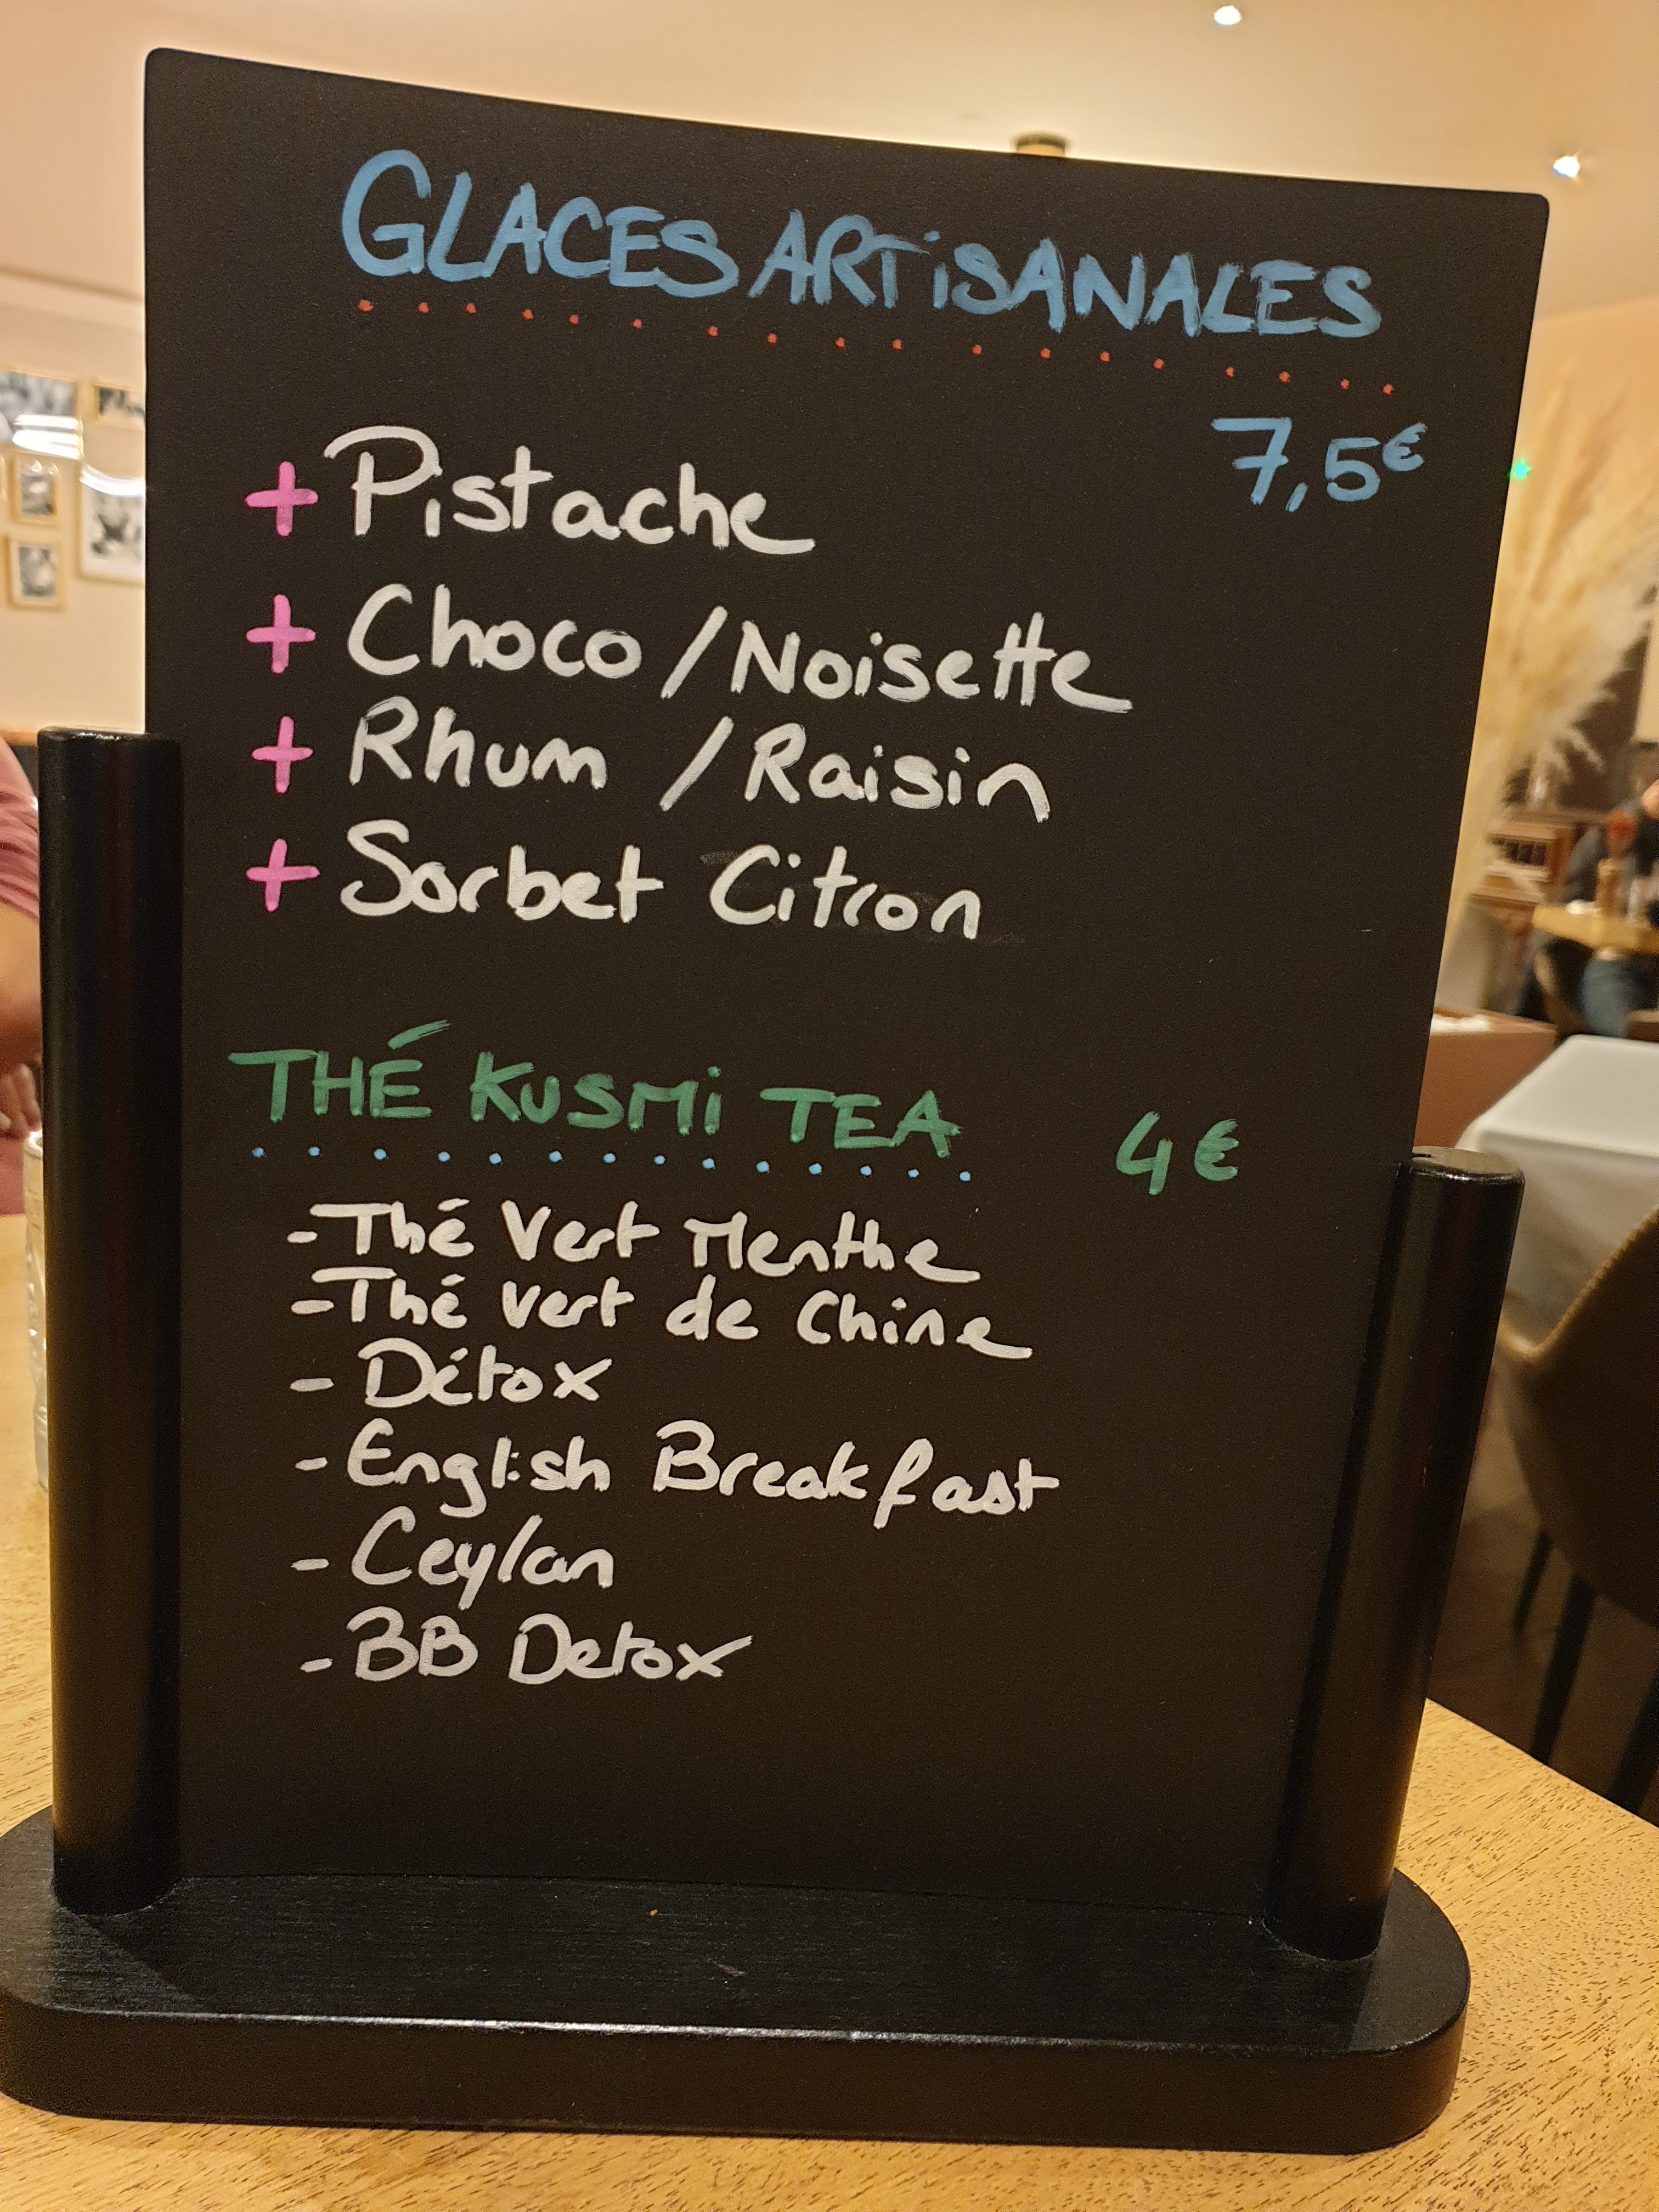 GLACES ARTiSANALES
7,5€
+ Pistache
+ Choco / Noisette
+ Rhum / Raisin
+ Sorbet Citron
THÉ KUSMi TEA 4€
- Thé Vert Menthe
- Thé vert de Chine
- Détox
- English Breakfast
- Ceylan
- BB Detox